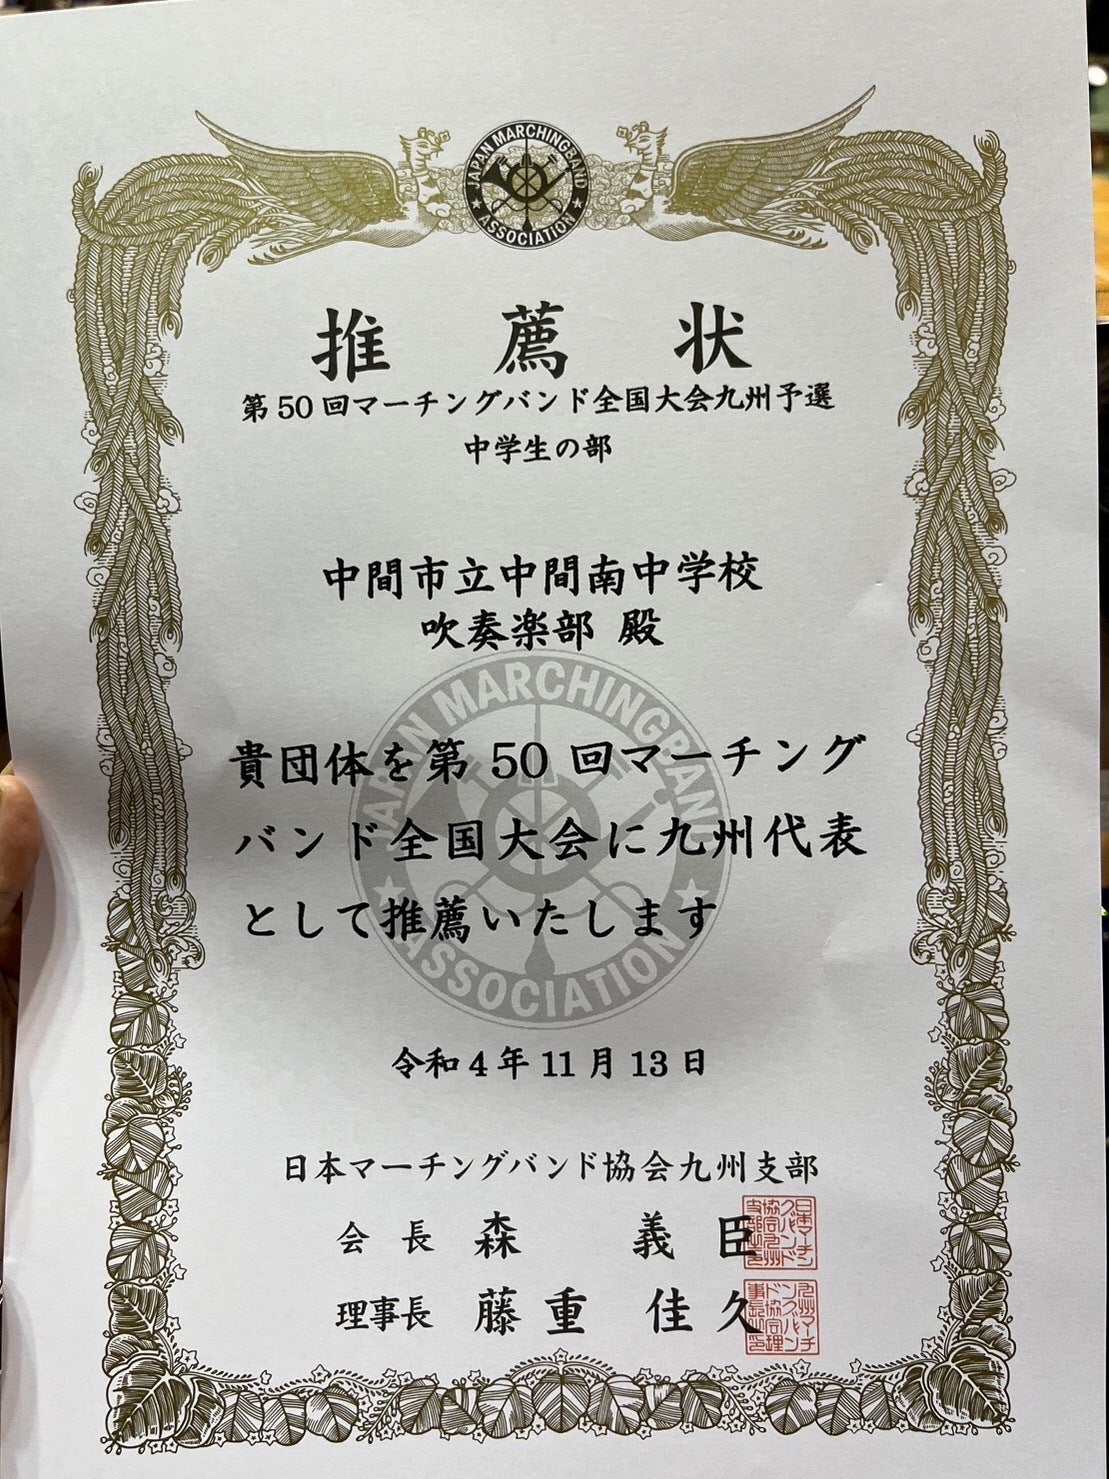 JAPAN MARCHINGBAND ASSOCIATION
推薦状
第50回マーチングバンド全国大会九州予選
中学生の部
中間市立中間南中学校
吹奏楽部 殿
JAPAN MARCHINGBAND ASSOCIATION
貴団体を第50回マーチング
バンド全国大会に九州代表
として推薦いたします
令和4年11月13日
日本マーチングバンド協会九州支部
会長 森 義臣
理事長 藤重 佳久